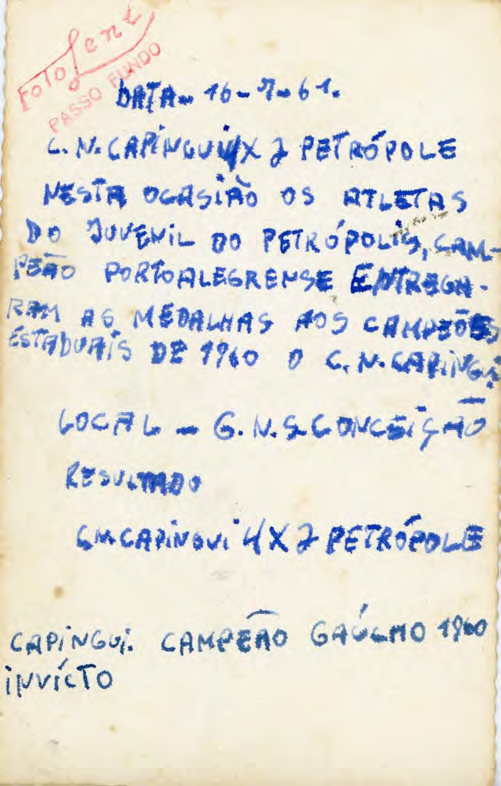 Foto Jeni
PASSO FUNDO
DATA- 16-7-61.
C.N.CAPINGUI 4X2 PETRÓPOLE
NESTA OCASIÃO OS ATLETAS
DO JUVENIL DO PETRÓPOLIS, CAM-
PEÃO PORTOALEGRENSE ENTREGA-
RAM AS MEDALHAS AOS CAMPEÕES
ESTADUAIS DE 1960 O C.N.CAPINGUI
LOCAL - G.N.S.CONCEIÇÃO
RESULTADO
C.N.CAPINGUI 4X2 PETRÓPOLE
CAPINGUI. CAMPEÃO GAÚCHO 1960
INVÍCTO